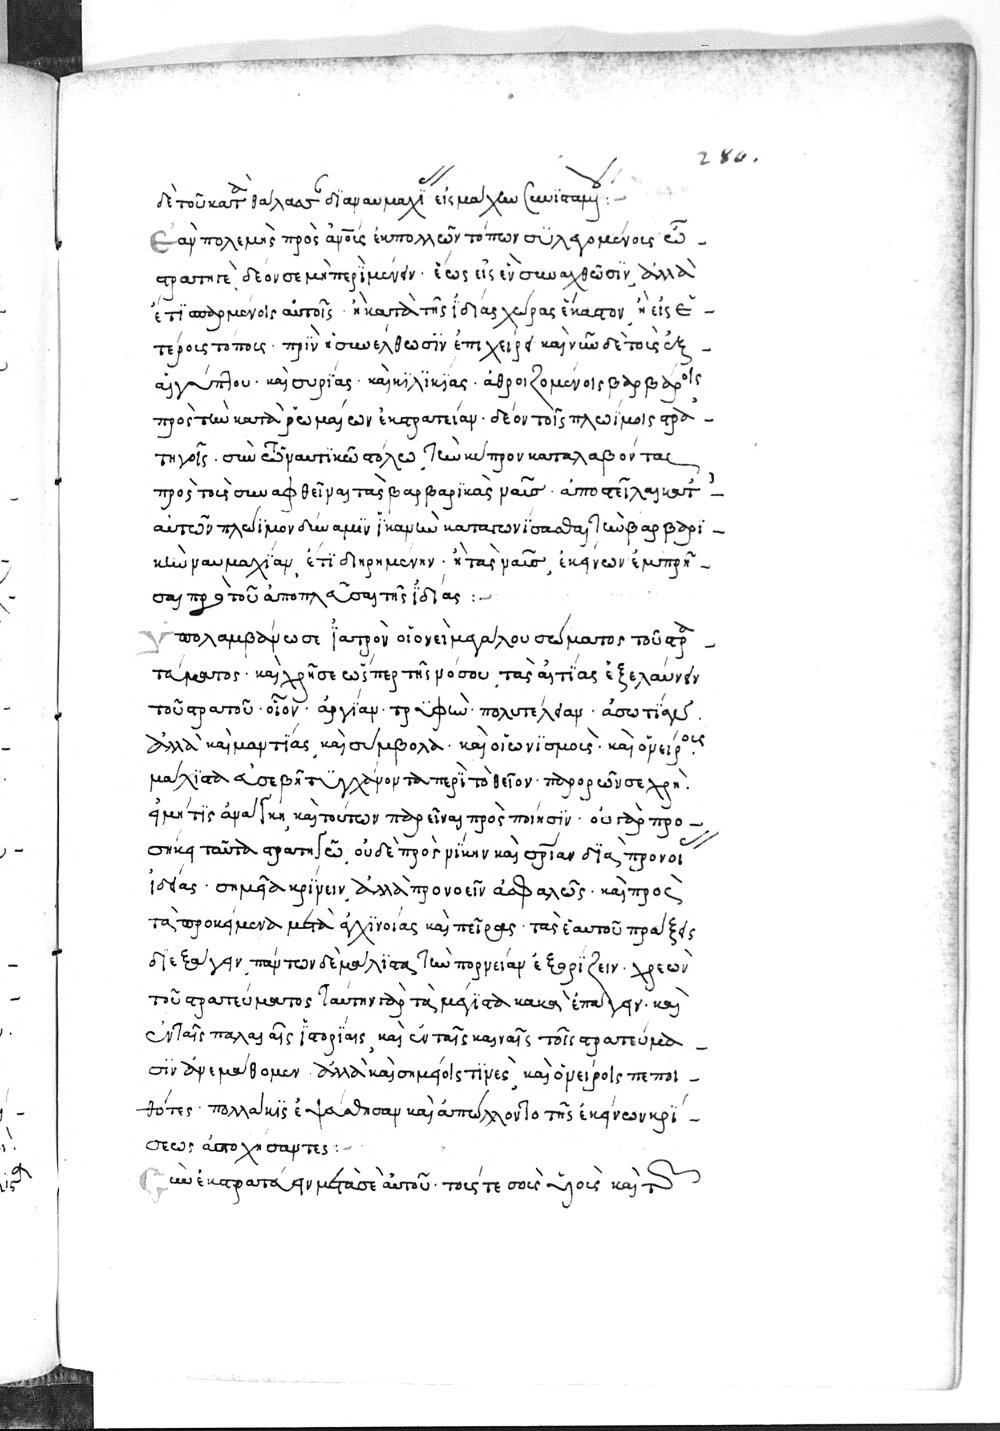 280.
δὲ τοῦ κατὰ θάλασσ διὰ ναυμαχΐ εἰς μάχην συνϊσταμ :-
Ἐὰν πολεμῇς πρὸς ἀνοῖς ἐκ πολλῶν τόπων συλλεγομένοις ὦ
στρατηγὲ, δέον σε μὴ περϊμένειν· ἕως εἰς ἓν συναχθῶσϊν, ἀλλὰ
ἔτϊ σπαρμένοις αὐτοῖς· ἢ κατὰ τῆς ἰδίας χώρας ἕκαστον, ἢ εἰς ἑ-
τέροις τόποις· πρϊν ἢ συνελθωσϊν ἐπιχείρει καὶ νῦν δὲ τοῖς ἐξ
αἰγύπτου· καὶ συρίας· καὶ κϊλϊκίας· ἀθροιζομένοις βαρβάροις
πρὸς τὴν κατὰ ῥωμαίων ἐκστρατείαν· δέον τοῖς πλωΐμοις στρα-
τηγοῖς· σὺν τῷ ναυτϊκῷ στόλῳ, τὴν κύπρον καταλαβόντας
πρὸς τοῖς συναφθεῖναι τὰς βαρβαρϊκὰς ναῦς· ἀποστεῖλαι κατ᾽
αὐτῶν πλώϊμον δύναμϊν ϊκανὴν καταγωνίσασθαι τὴν βαρβαρϊ-
κὴν ναυμαχίαν, ἔτϊ διῃρημένην· ἢ τὰς ναῦς, ἐκείνων ἐμπρῆ-
σαι πρὸ τοῦ ἀποπλεῦσαι τῆς ἰδίας :-
Ὑπολάμβανέ σε ἰατρὸν οἱονεὶ μεγάλου σώματος τοῦ στρα-
τεύματος· καὶ χρῆσε ὥσπερ τῆς νόσου, τὰς αἰτίας ἐξελαύνειν
τοῦ στρατοῦ· οἷον· ἀργίαν· τρυφὴν· πολυτέλειαν· ἀσωτίαν.
ἀλλὰ καὶ μαντίας, καὶ σύμβολα· καὶ οἰωνϊσμοὺς· καὶ ὀνείροις
μάλϊστα ἀσεβῆ τυγχάνοντα περὶ τὸ θεῖον· παρορῶν σε χρή.
εἰ μή τϊς ἀνάγκη, καὶ τούτων παρεῖναι πρὸς ποίησϊν· οὐ γὰρ προ-
σήκει ταῦτα στρατηγῷ, οὐδὲ πρὸς νίκην καὶ σρίαν διὰ προνοι
ἰδίας· σημεῖα κρίνειν, ἀλλὰ προνοεῖν ἀσφαλῶς· καὶ πρὸς
τὰ προκείμενα μετὰ ἀγχϊνοίας καὶ πείρας· τὰς ἑαυτοῦ πράξεις
διεξάγειν, πάντων δὲ μάλϊστα τὴν πορνείαν ἐξορίζειν· χρεὼν
τοῦ στρατεύματος ταύτην γὰρ τὰ μέγϊστα κακὰ ἐπάγειν· καὶ
ἐν ταῖς παλαιαῖς ἱστορίαις, καὶ ἐν ταῖς καιναῖς τοῖς στρατεύμα-
σϊν ἀνεμάθομεν· ἀλλὰ καὶ σημείοις τϊνὲς, καὶ ὀνείροις πεποι-
θότες· πολλάκϊς ἐψεύσθησαν καὶ ἀπώλλοντο τῆς ἐκείνων κρί-
σεως ἀστοχήσαντες :-
Συνεκστρατεύειν μετὰ σὲ αὐτοῦ· τούς τε σοὺς υἱοὺς καὶ τ